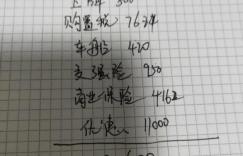 上牌 500
购置税 7624
车船税 420
交强险 950
商业保险 4162
优惠 11000